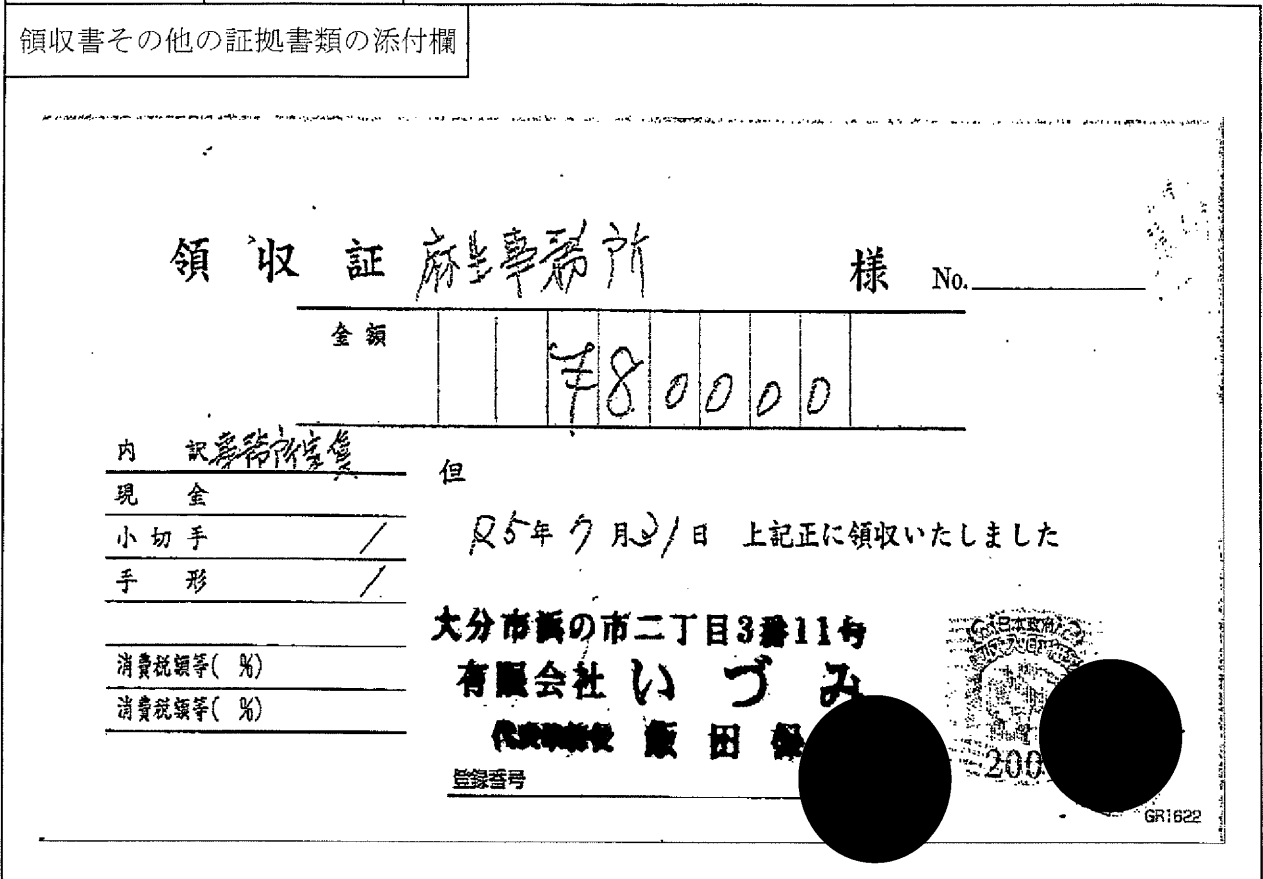 領収書その他の証拠書類の添付欄
領収証 麻生事務所 様 No.
金額 ¥80000
内訳 事務所家賃
現金
小切手 /
手形 /
消費税額等( %)
消費税額等( %)
但
R5年7月31日 上記正に領収いたしました
大分市浜の市二丁目3番11号
有限会社いづみ
代表取締役 飯田
登録番号
日本政府
200
GR1622